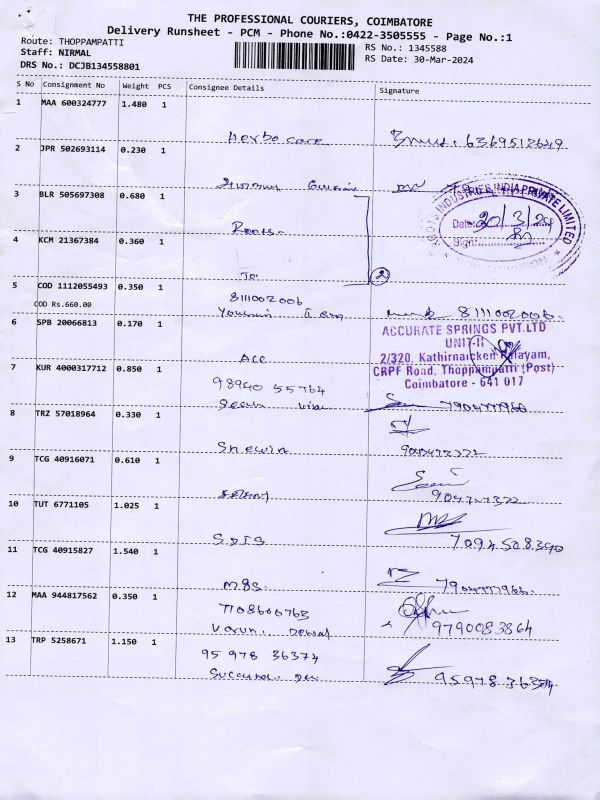 THE PROFESSIONAL COURIERS, COIMBATORE
Delivery Runsheet - PCM - Phone No.:0422-3505555 - Page No.:1
Route: THOPPAMPATTI
RS No.: 1345588
Staff: NIRMAL
RS Date: 30-Mar-2024
DRS No.: DCJB134558801
S No Consignment No Weight PCS Consignee Details Signature
1 MAA 600324777 1.480 1
Herbo care 6369512649
2 JPR 502693114 0.230 1
3 BLR 505697308 0.680 1
INDUSTRIES INDIA PRIVATE LIMITED
Date: 20/3/24
Sign:
Roots
4 KCM 21367384 0.360 1
To
2
5 COD 1112055493 0.350 1
COD Rs.660.00
8111002006
8111002006
6 SPB 20066813 0.170 1
ACCURATE SPRINGS PVT.LTD
UNIT-II
2/320, Kathirnaicken Palayam,
CRPF Road, Thoppampatti (Post)
Coimbatore - 641 017
Acc
7 KUR 4000317712 0.850 1
98940 55764
7904777966
8 TRZ 57018964 0.330 1
Shewin
9 TCG 40916071 0.610 1
10 TUT 6771105 1.025 1
SDIS
11 TCG 40915827 1.540 1
7904777966
12 MAA 944817562 0.350 1
7708600763
Varun 9790083864
13 TRP 5258671 1.150 1
95 978 36374
95978 36374